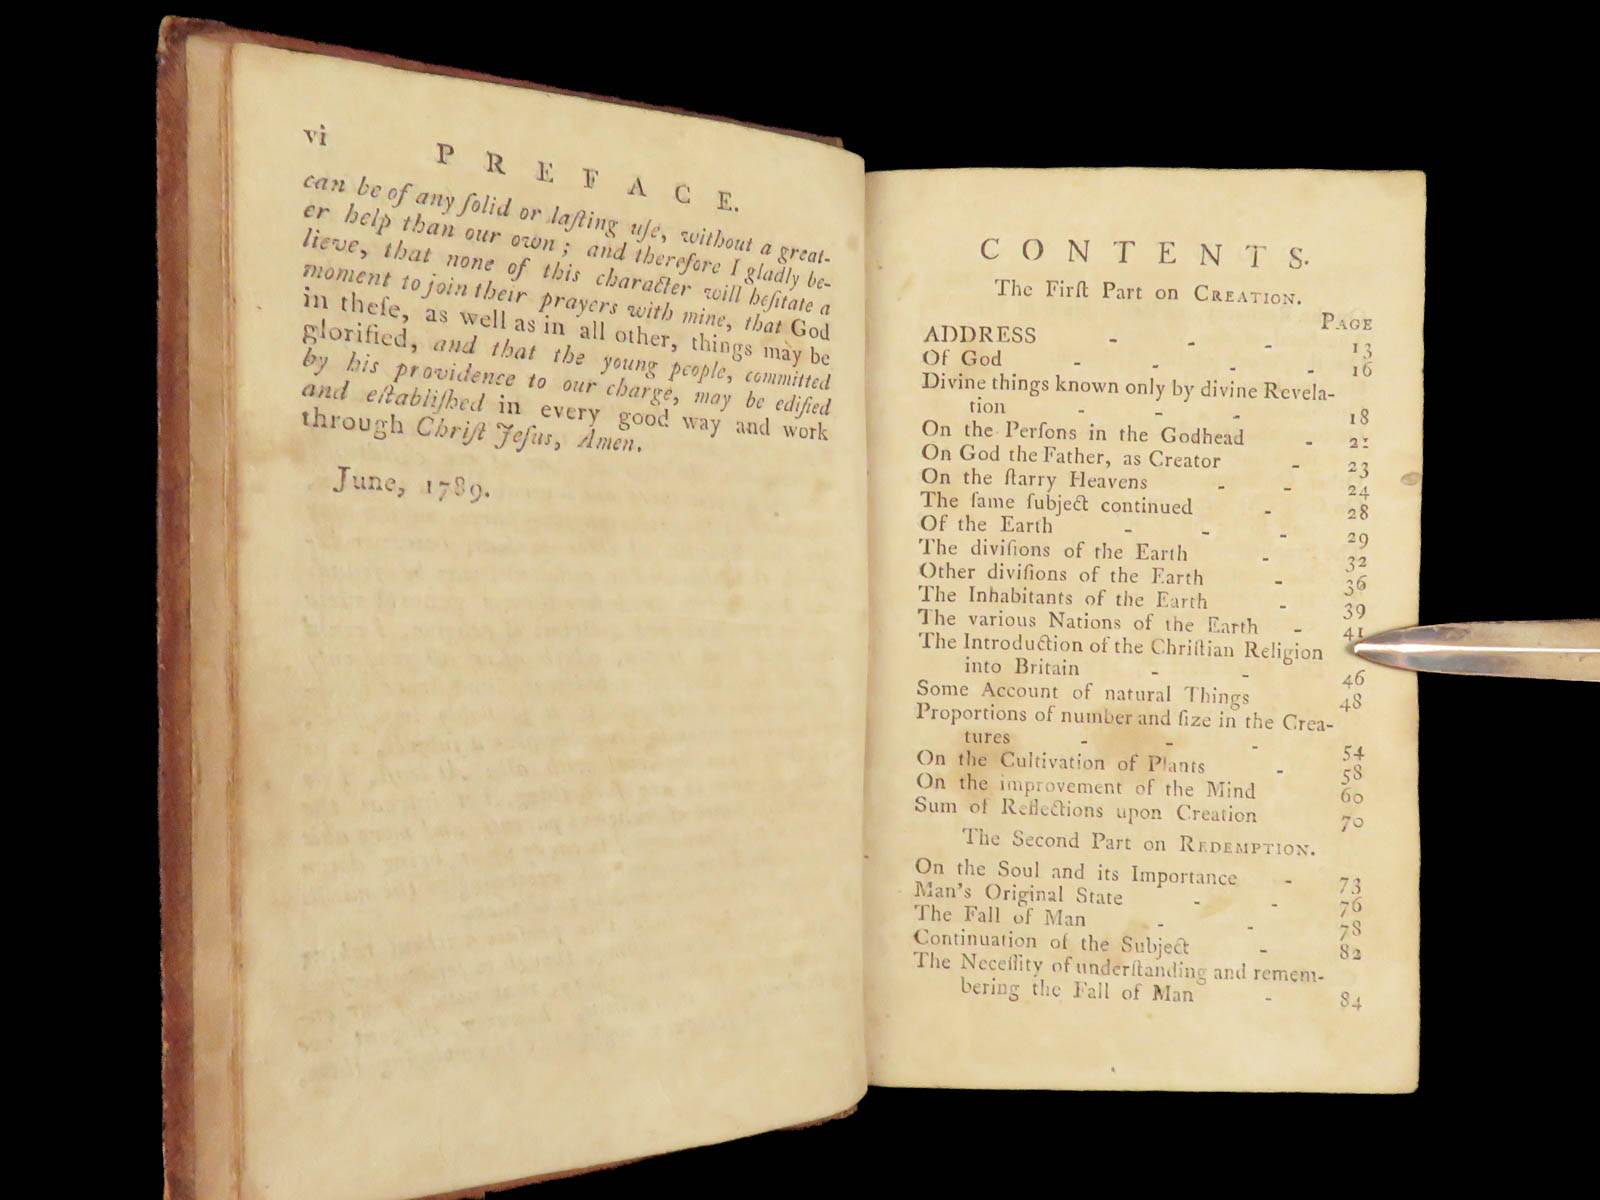 vi
PREFACE.
can be of any ſolid or laſting uſe, without a great-
er help than our own; and therefore I gladly be-
lieve, that none of this character will heſitate a
moment to join their prayers with mine, that God
in theſe, as well as in all other, things may be
glorified, and that the young people, committed
by his providence to our charge, may be edified
and eſtabliſhed in every good way and work
through Chriſt Jeſus, Amen.
June, 1789.
CONTENTS.
The Firſt Part on CREATION.
PAGE
ADDRESS - - - 13
Of God - - - - 16
Divine things known only by divine Revela-
tion - - - 18
On the Perſons in the Godhead - 21
On God the Father, as Creator - 23
On the ſtarry Heavens - - 24
The ſame ſubject continued - 28
Of the Earth - - - 29
The diviſions of the Earth - 32
Other diviſions of the Earth - 36
The Inhabitants of the Earth - 39
The various Nations of the Earth - 41
The Introduction of the Chriſtian Religion
into Britain - - 46
Some Account of natural Things 48
Proportions of number and ſize in the Crea-
tures - - - 54
On the Cultivation of Plants - 58
On the improvement of the Mind 60
Sum of Reflections upon Creation 70
The Second Part on REDEMPTION.
On the Soul and its Importance - 73
Man's Original State - - 76
The Fall of Man - - 78
Continuation of the Subject - 82
The Neceſſity of underſtanding and remem-
bering the Fall of Man - 84